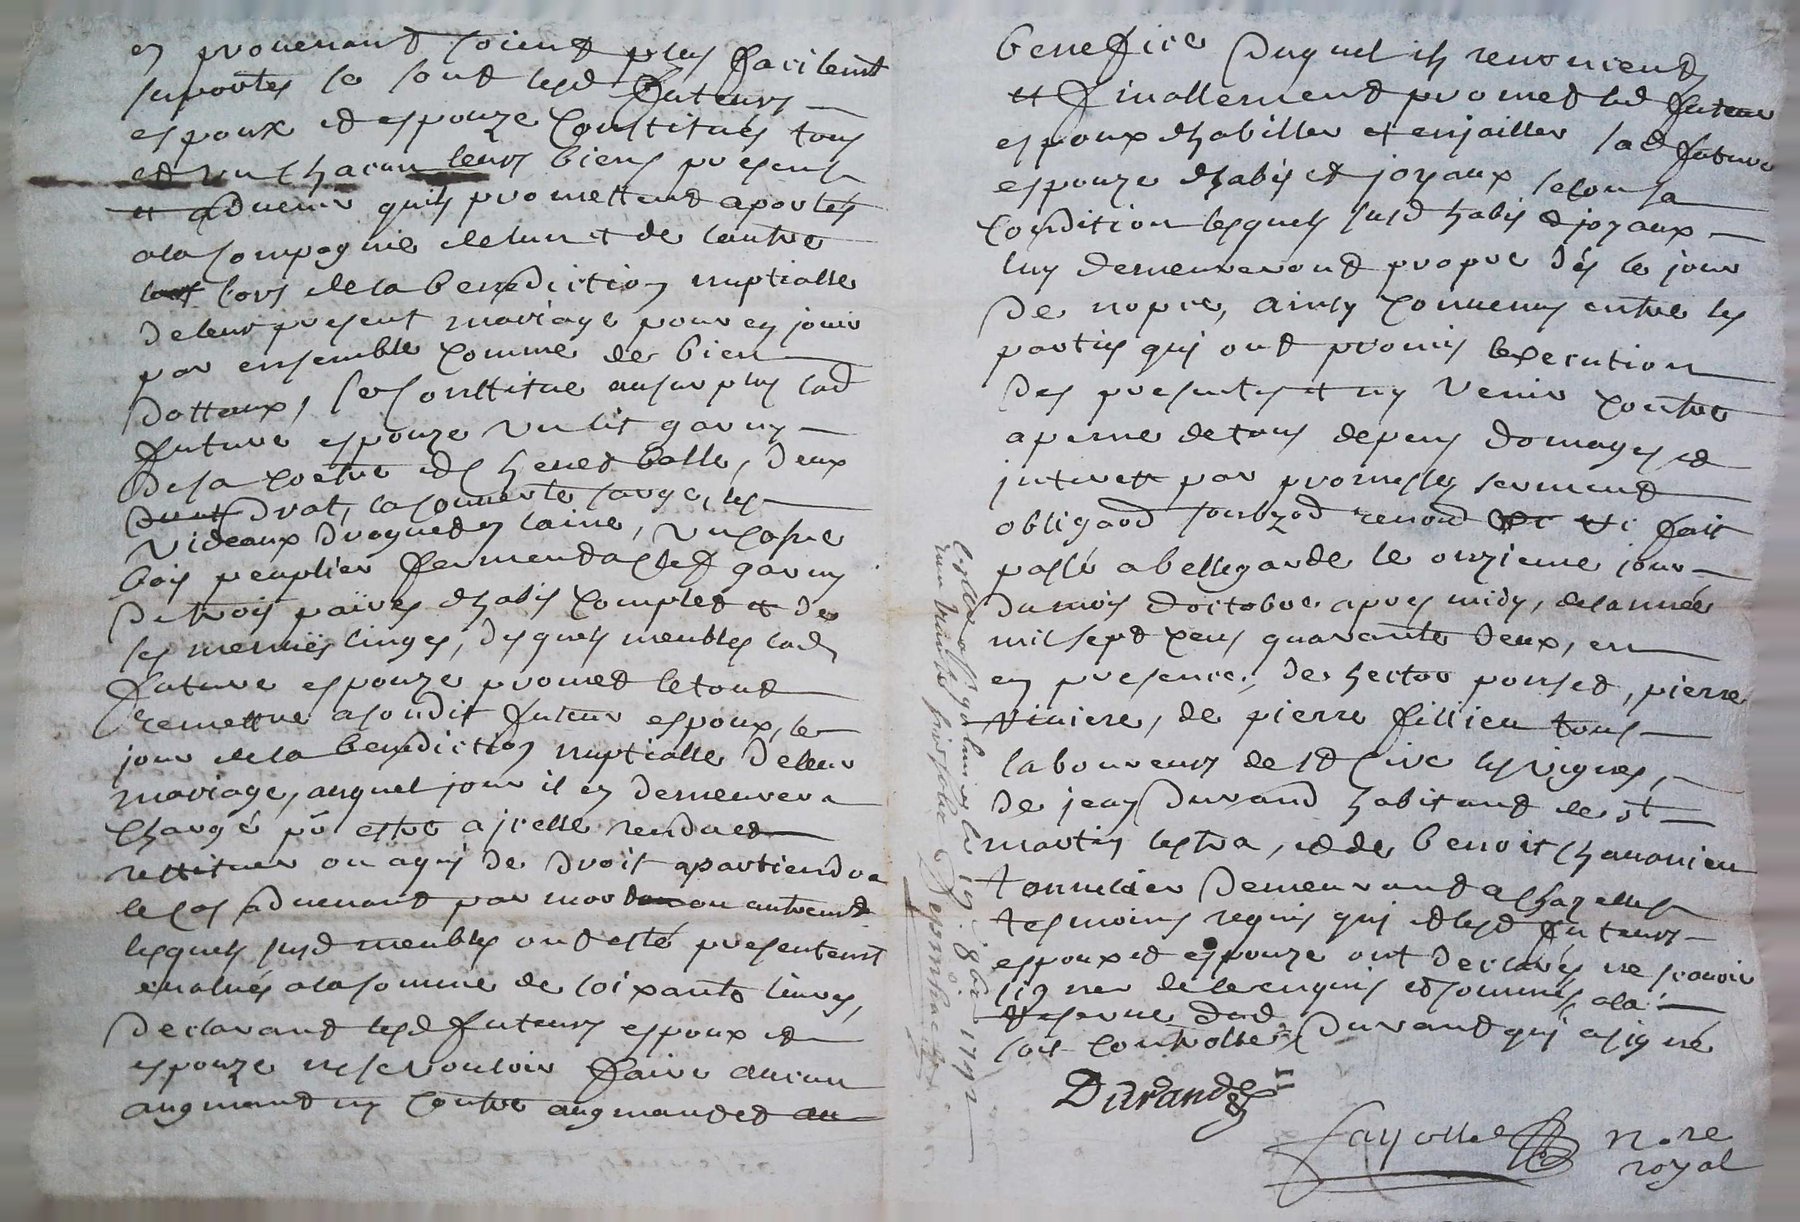 en provenant soient plus facilemt
suportés se sont lesd futeurs
espoux et espouze constitués tous
et un chacun leurs biens presens
et advenir quils promettent aportés
a la compagnie de lun et de lautre
lors de la benediction nuptialle
de leur present mariage pour en jouir
par ensemble comme de bien
dottaux, se constitue ausurplus lad
future espouze un lit garny
de sa coetre et chevet balle, deux
drat, la couverte sarge, les
rideaux droguet en laine, un cofre
bois peuplier fermend a clef garny
de trois paires dhabis complet et de
ses menües linges, desquels meubles lad
future espouze promet le tout
remettre a sondit futeur espoux, le
jour de la benediction nuptialle de leur
mariage, auquel jour il en demeurera
chargé pr estre a jcelle rendu et
restituer ou a qui de droit apartiendra
le cas advenant par mort ou autremt
lesquels susd meubles ont esté presentemt
evalués a la somme de soixante livres,
declarant lesd futeurs espoux et
espouze ne se vouloir faire aucun
augmant ny contre augmandet au
benefice duquel ils renoncent
et finallement promet led futeur
espoux dhabiller et enjailler sad future
espouze dhabis et joyaux selon sa
condition lesquels susd habis et joyaux
luy demeureront propre dés le jour
de nopce, ainsy convenus entre les
parties qui ont promis lexecution
des presentes et ny venir contre
a peine de tous depens domages et
interett par promesses serment
obligaod soubzod renond &c fait
passé a bellegarde le onzieme jour
du mois doctobre apres midy, de lannée
mil sept cens quarante deux, en
en presence, de hector ponset, pierre
viniere, de pierre fillieu tous
laboureurs de st Circ les vignes,
de jean Durand habitant de st
martin lestra, et de benoit chavanieu
tonnelier demeurant a chazelles
tesmoins requis qui et lesd futeurs
espoux et espouze ont declarés ne scavoir
signer de le enquis et sommés a la
reserve dud Durand qui a signé
soit controllé
Durand
Fayolle nore
royal